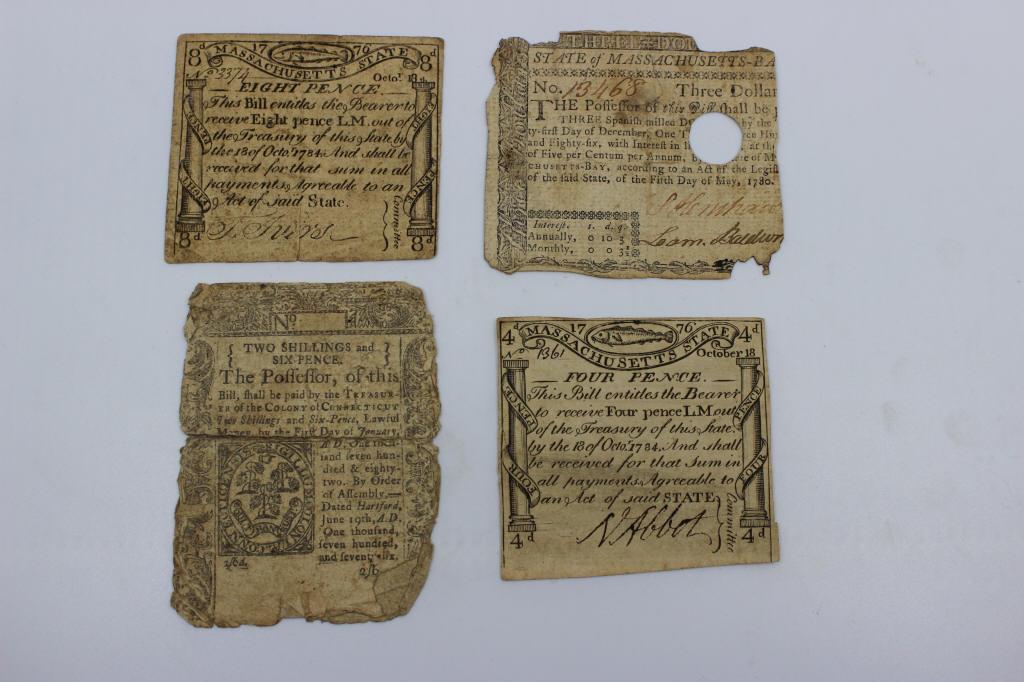 8d 17 76 8d
MASSACHUSETTS STATE
No 3374 Octor. 18
EIGHT PENCE.
This Bill entitles the Bearer to
receive Eight pence L.M. out of
the Treasury of this State by
the 18 of Octo. 1784. And shall be
received for that sum in all
payments, Agreeable to an
Act of said State.
Committee
EIGHT PENCE
EIGHT PENCE
8d 8d
THREE DOL
STATE of MASSACHUSETTS-BA
No. 13468 Three Dollar
THE Possessor of this Bill shall be
THREE Spanish milled D by the
ty-first Day of December, One T
and Eighty-six, with Interest in at th
of Five per Centum per Annum, by re of M
CHUSETTS-BAY, according to an Act of the Legisl
of the said State, of the Fifth Day of May, 1780.
Interest. s. d. q.
Annually, 0 10 3
Monthly, 0 0 3½
No
TWO SHILLINGS and
SIX-PENCE.
The Possessor, of this
Bill, shall be paid by the TREASUR-
ER of the COLONY of CONNECTICUT
Two Shillings and Six-Pence, Lawful
Money, by the First Day of January,
A.D. One thou-
sand seven hun-
dred & eighty-
two. By Order
of Assembly.
Dated Hartford,
June 19th, A.D.
One thousand,
seven hundred,
and seventy-six.
2/6d. 2/6
4d 17 76 4d
MASSACHUSETTS STATE
No 1361 October 18
FOUR PENCE.
This Bill entitles the Bearer
to receive Four pence L.M. out
of the Treasury of this State
by the 18 of Octo. 1784. And shall
be received for that Sum in
all payments Agreeable to
an Act of said STATE
N Abbot
Committee
FOUR PENCE
FOUR PENCE
4d 4d